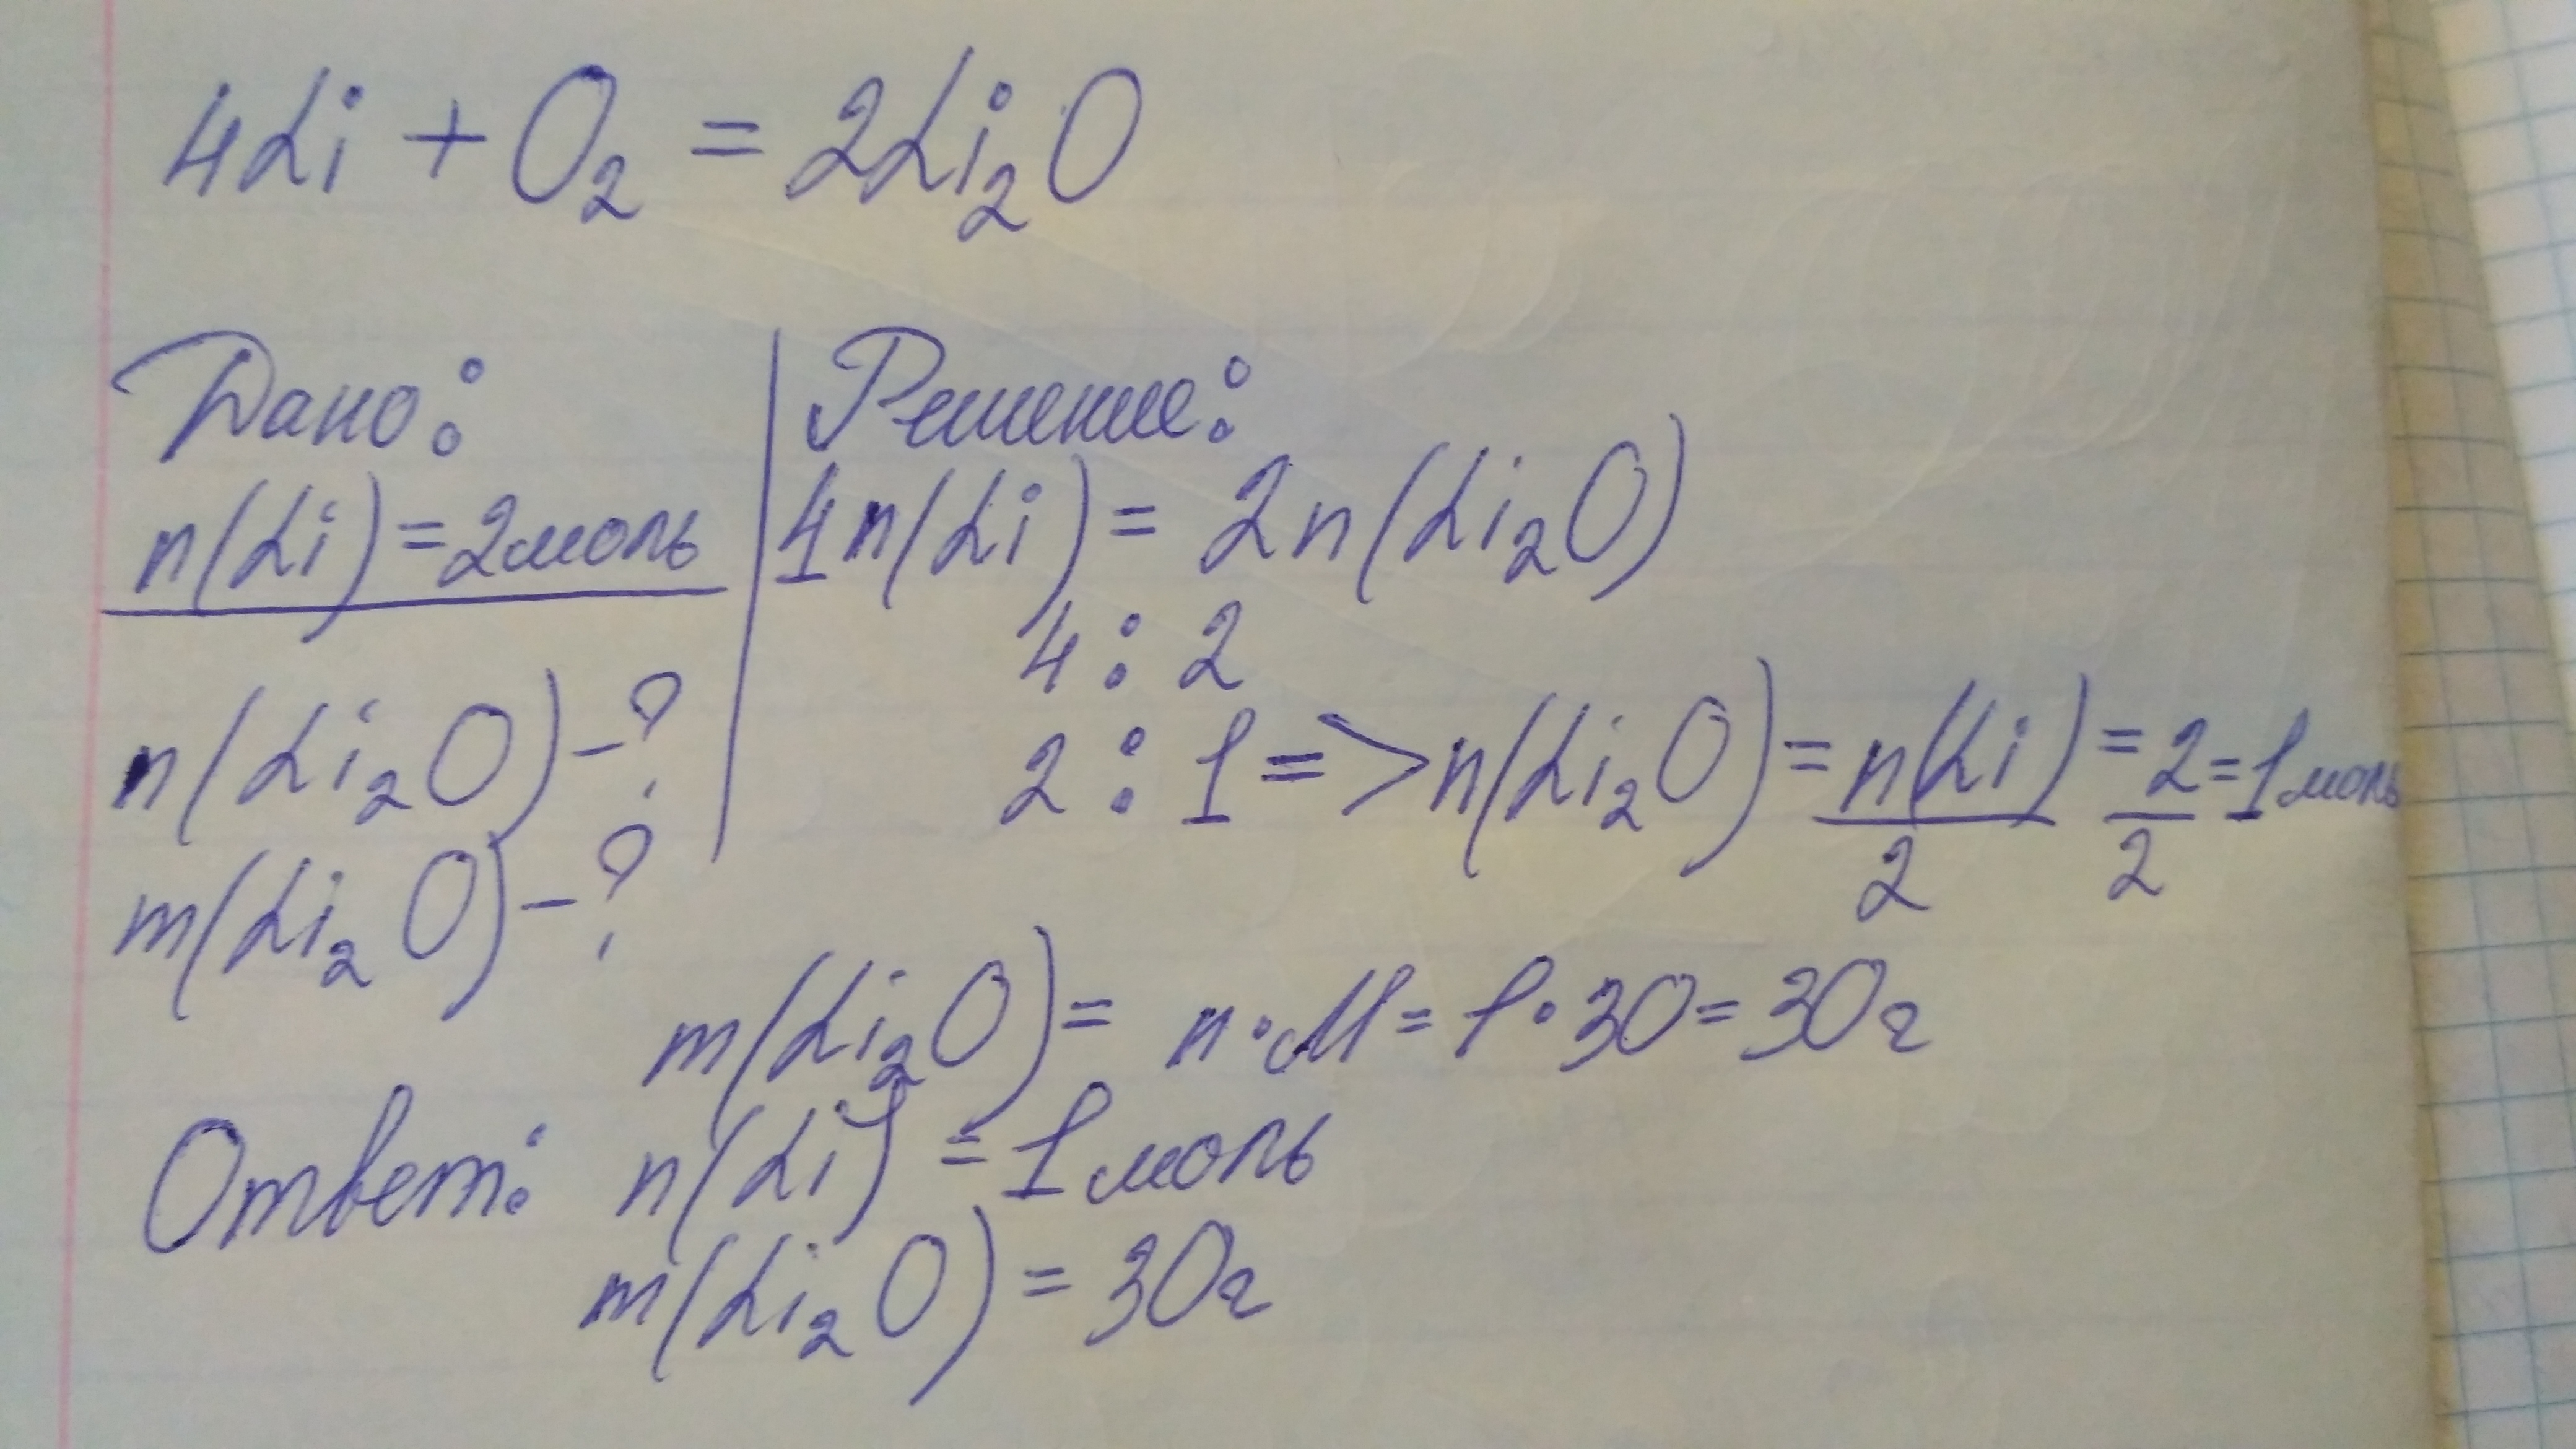 4Li + O₂ = 2Li₂O
Дано:
n(Li) = 2моль
n(Li₂O) - ?
m(Li₂O) - ?
Решение:
4n(Li) = 2n(Li₂O)
4 : 2
2 : 1 => n(Li₂O) = n(Li)/2 = 2/2 = 1моль
m(Li₂O) = n·M = 1·30 = 30г
Ответ: n(Li) = 1моль
m(Li₂O) = 30г